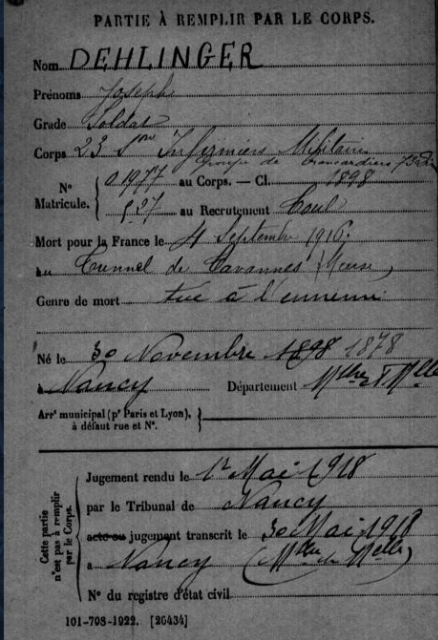 PARTIE À REMPLIR PAR LE CORPS.
Nom DEHLINGER
Prénoms Joseph
Grade Soldat
Corps 23 Son Infirmiers Militaires
groupe de brancardiers
N° Matricule. { 01977 au Corps. — Cl. 1898
537 au Recrutement Toul
Mort pour la France le 4 Septembre 1916
au Tunnel de Tavannes Meuse,
Genre de mort tué à l'ennemi
Né le 30 Novembre 1898 1878
à Nancy Département Mthe & Mlle
Arrt municipal (pr Paris et Lyon), à défaut rue et N°. }
Cette partie n'est pas à remplir par le Corps.
Jugement rendu le 1er Mai 1918
par le Tribunal de Nancy
acte ou jugement transcrit le 30 Mai 1918
à Nancy (Mthe & Melle)
N° du registre d'état civil
101-708-1922. [26434]